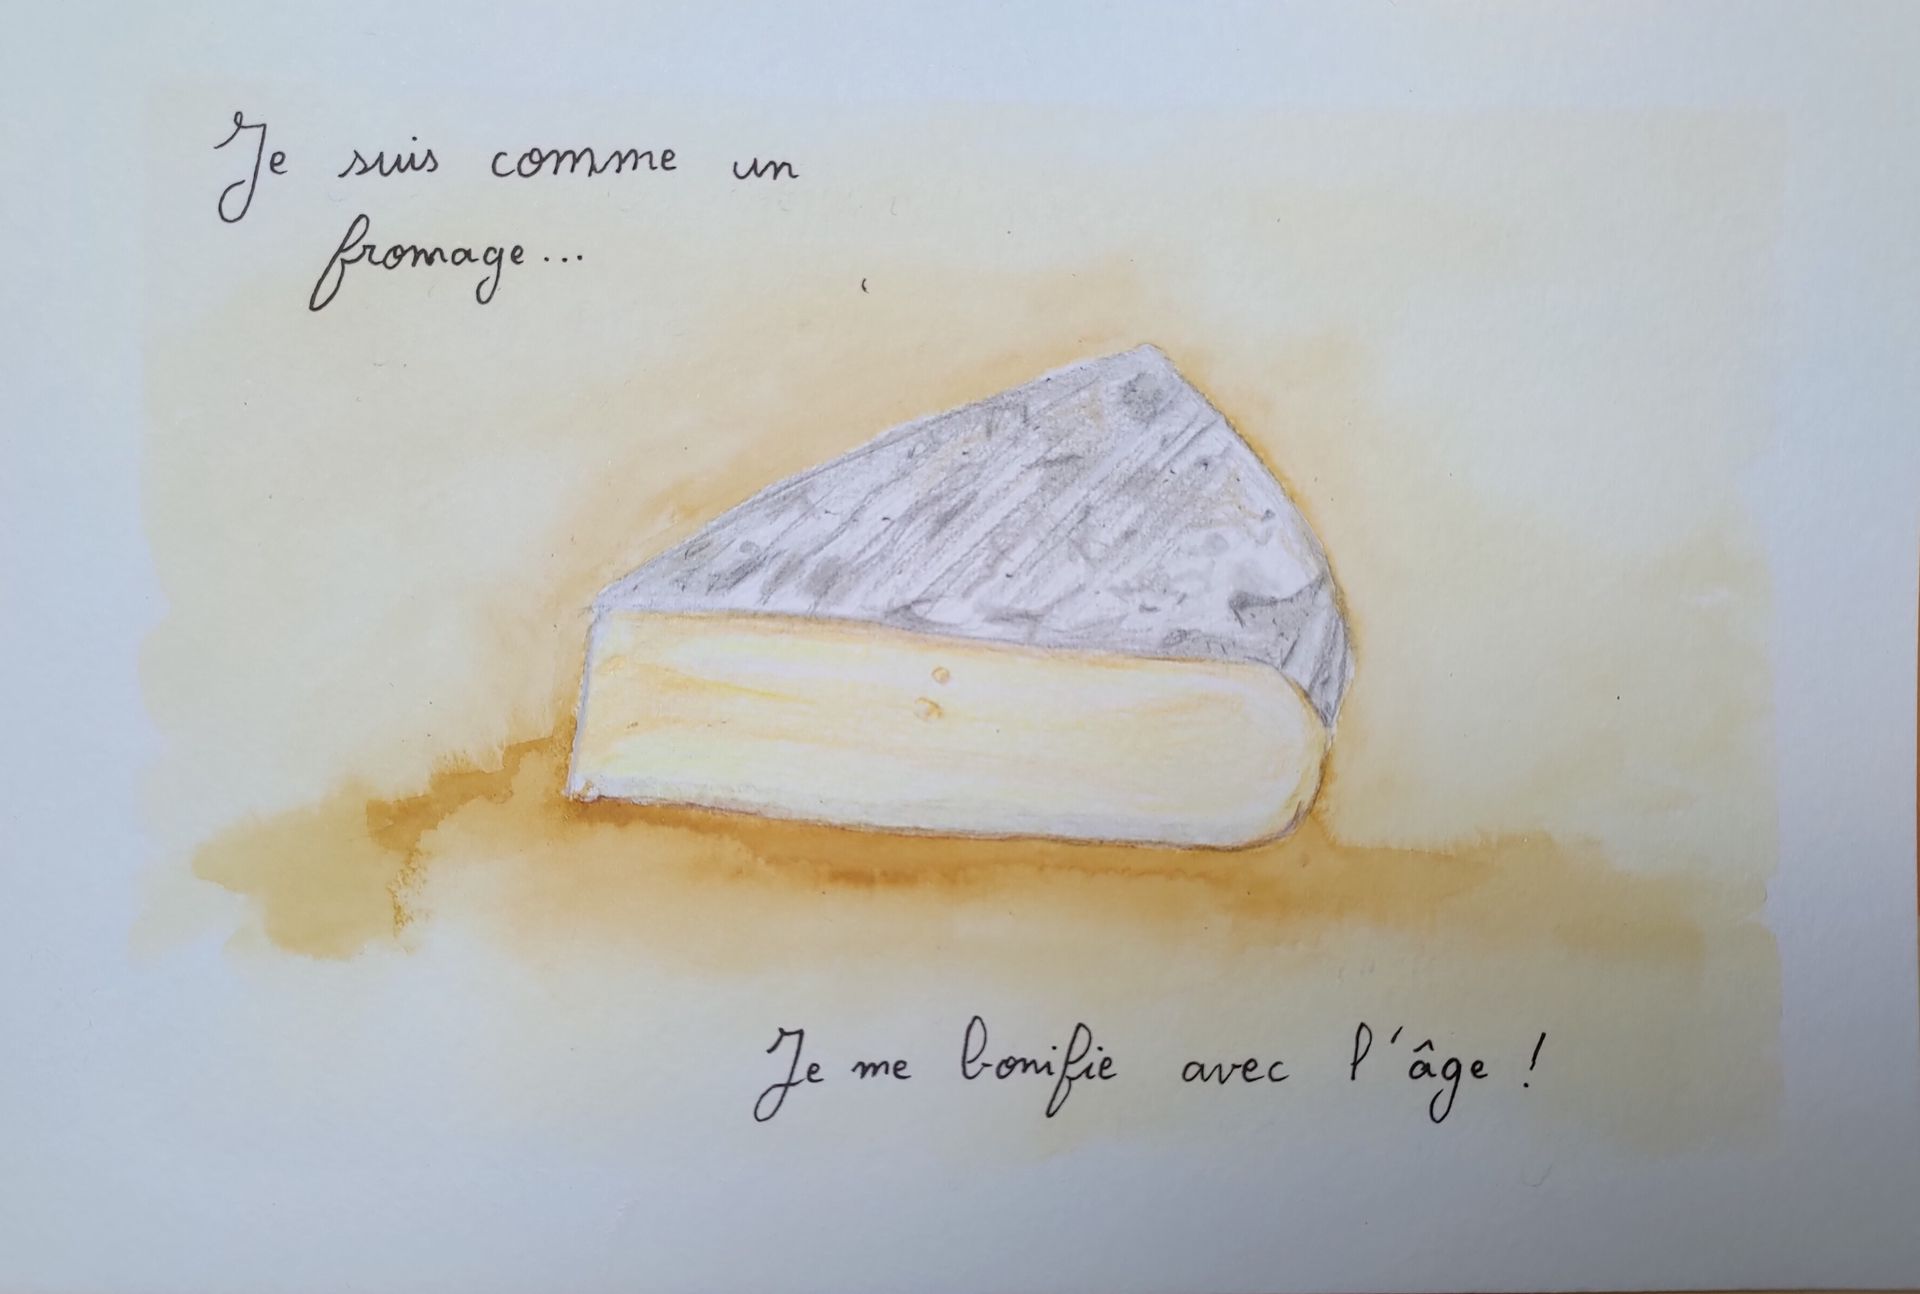 Je suis comme un
fromage...
Je me bonifie avec l'âge !